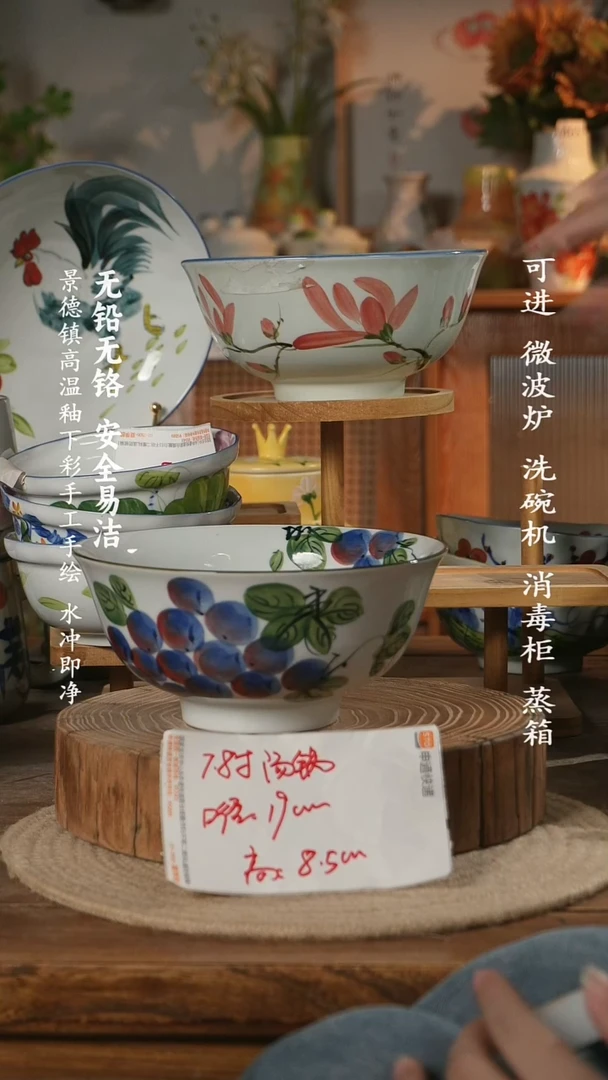 可进 微波炉 洗碗机 消毒柜 蒸箱
无铅无铬 安全易洁
景德镇高温釉下彩手工手绘 水冲即净
申通快递
7.8寸汤碗
口径: 19cm
高: 8.5cm